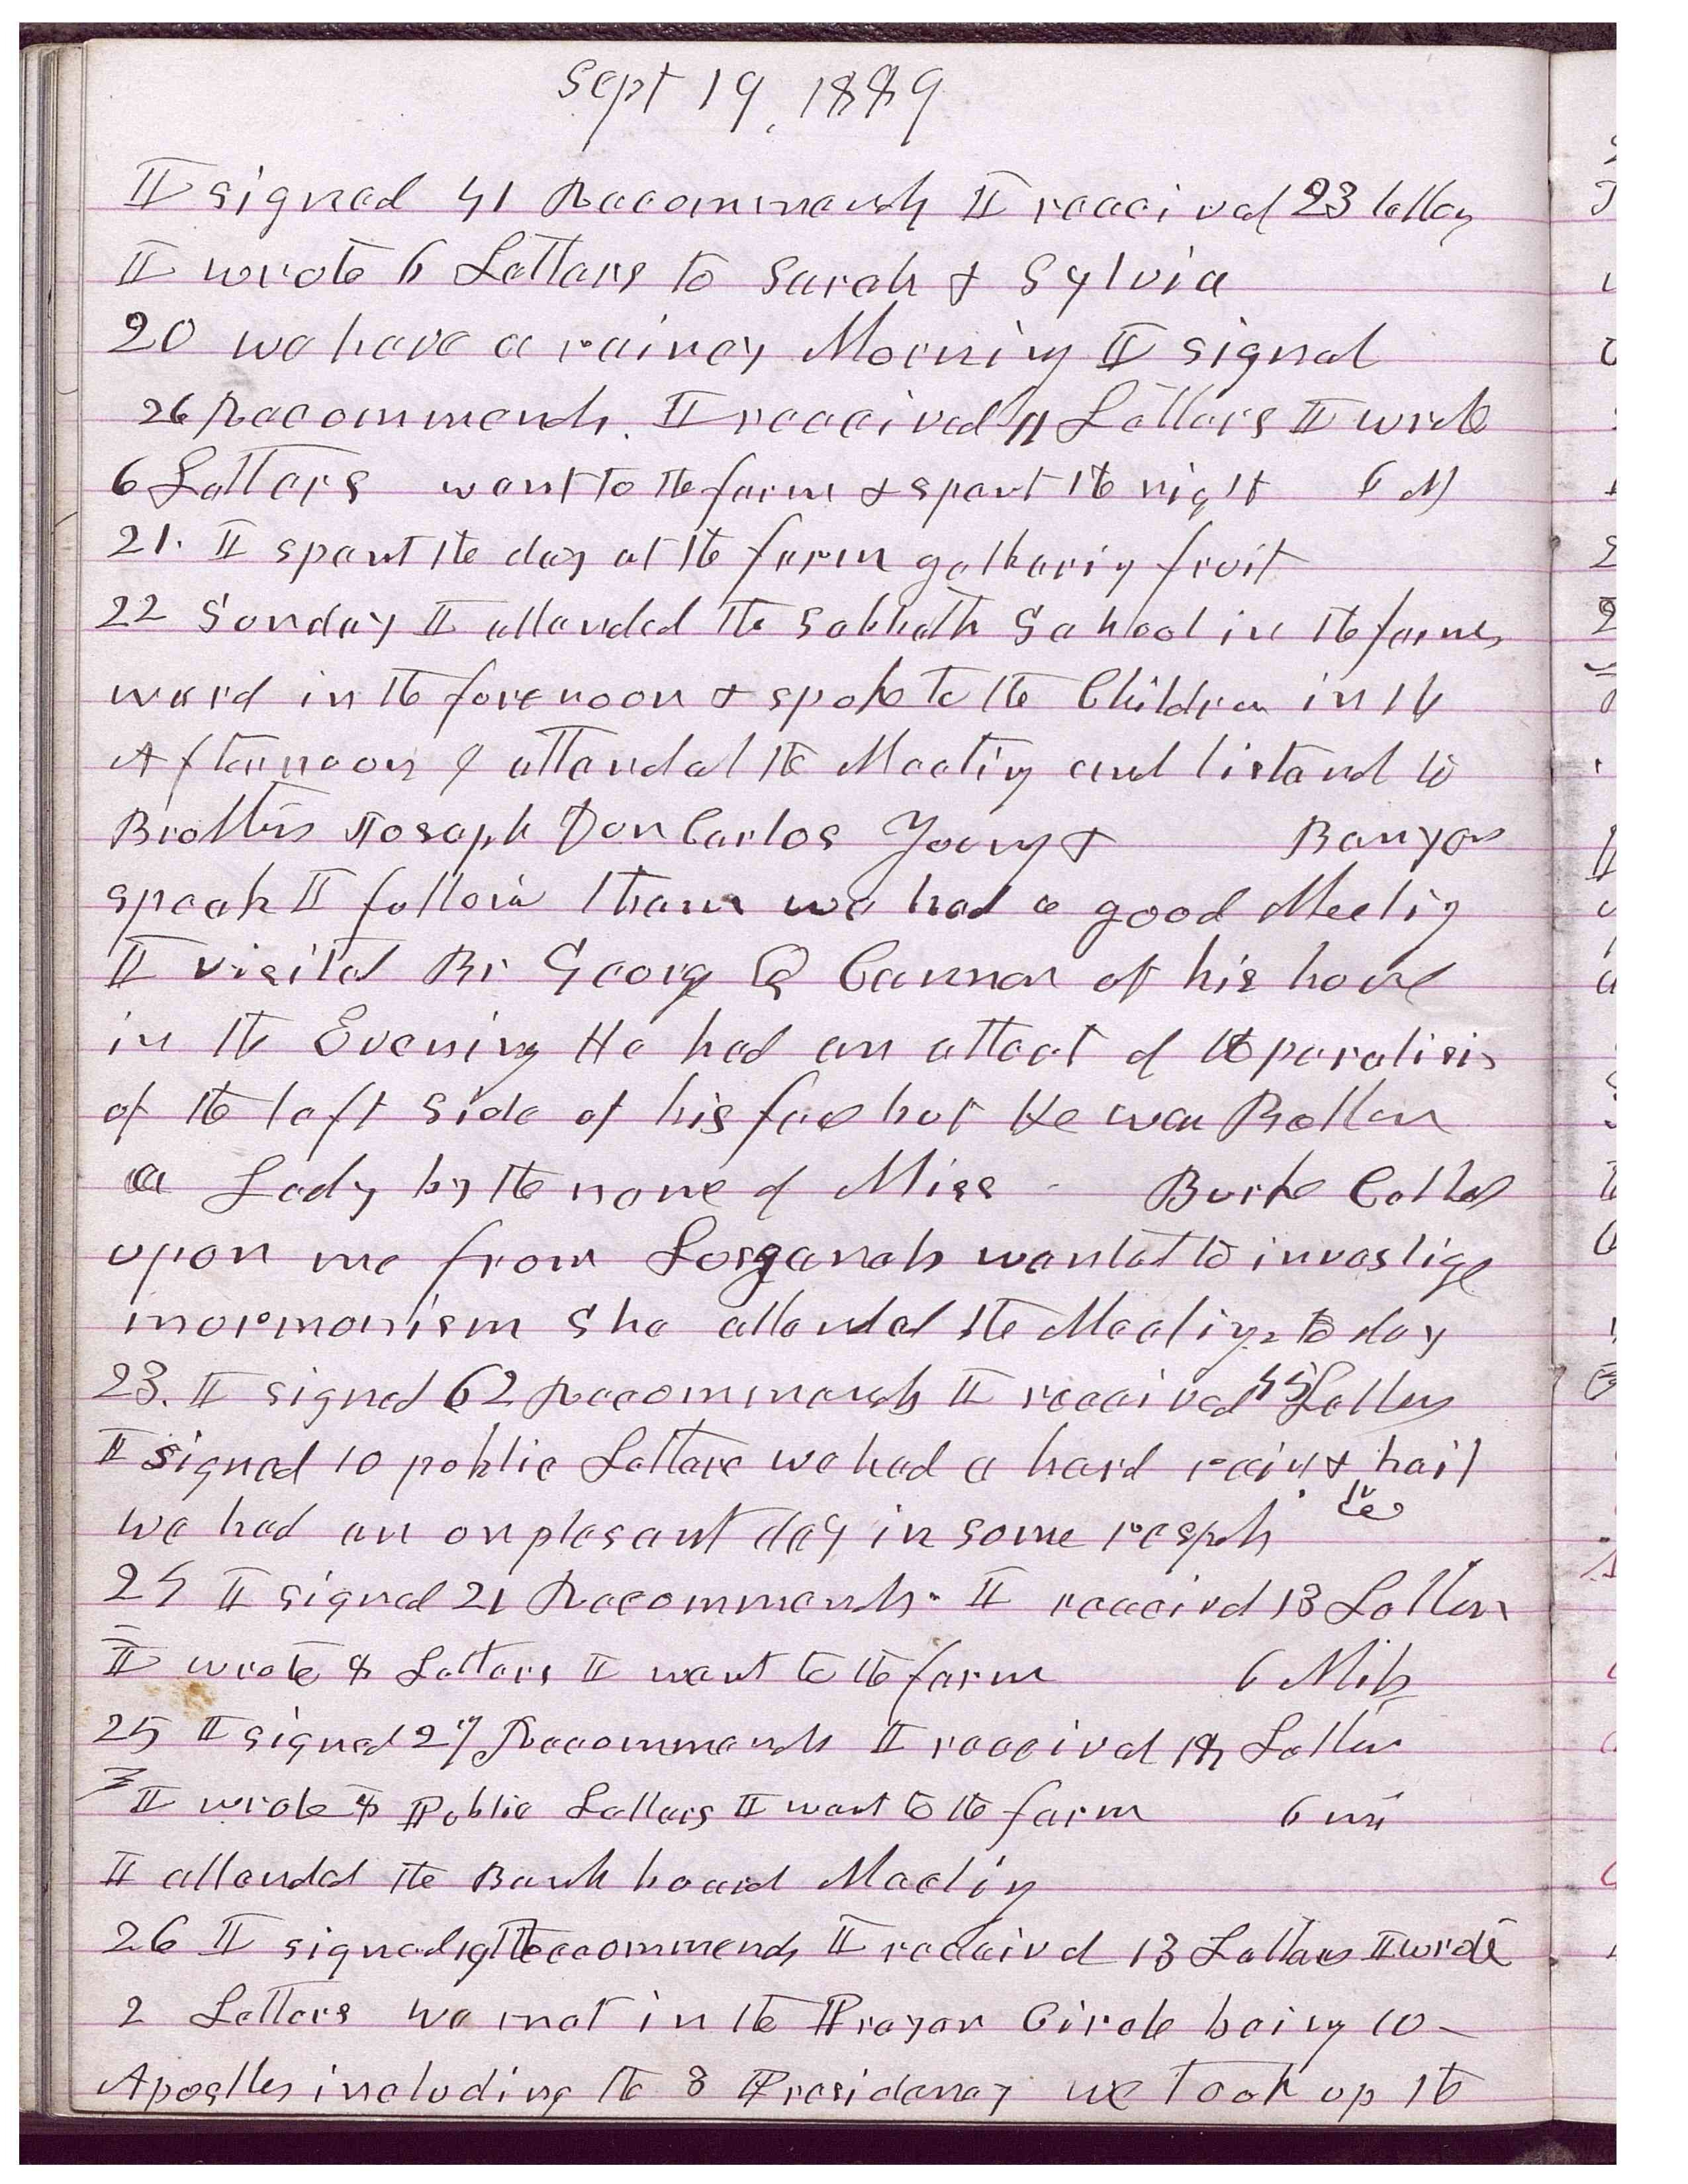 Sept 19, 1889
I signed 41 Recommends I received 23 letters
I wrote 6 Letters to Sarah & Sylvia
20 we have a rainey Morning I signed
26 Recommends. I received 11 Letters I wrote
6 Letters went to the farm & spent the night 6 M
21. I spent the day at the farm gathering fruit
22 Sunday I attended the Sabbath School in the farmers
ward in the forenoon & spoke to the Children in the
Afternoon I attended the Meeting and listend to
Brothers Joseph Don Carlos Young & Bunyon
speak I follow tham we had a good Meeting
I visited Br Georg Q Cannon at his house
in the Evening He had an attact of the paralisis
of the left side of his face but He was Better
a Lady by the name of Miss Burke Called
upon me from wanted to investige
mormonism She attended the Meetings to day
23. I signed 62 Recommends I received 45 Letters
I signed 10 public Letters we had a hard rain & hail
we had an unplesant day in some respts
24 I signed 21 Recommends. I received 13 Letters
I wrote 8 Letters I went to the farm 6 Mils
25 I signed 27 Recommends I received 18 Letters
I wrote 8 Public Letters I went to the farm 6 mi
I attended the Bank board Meeting
26 I signed 19 Recommends I received 13 Letters I wrote
2 Letters we met in the Prayer Circle being 10
Apostles including the 3 Presidency we took up the